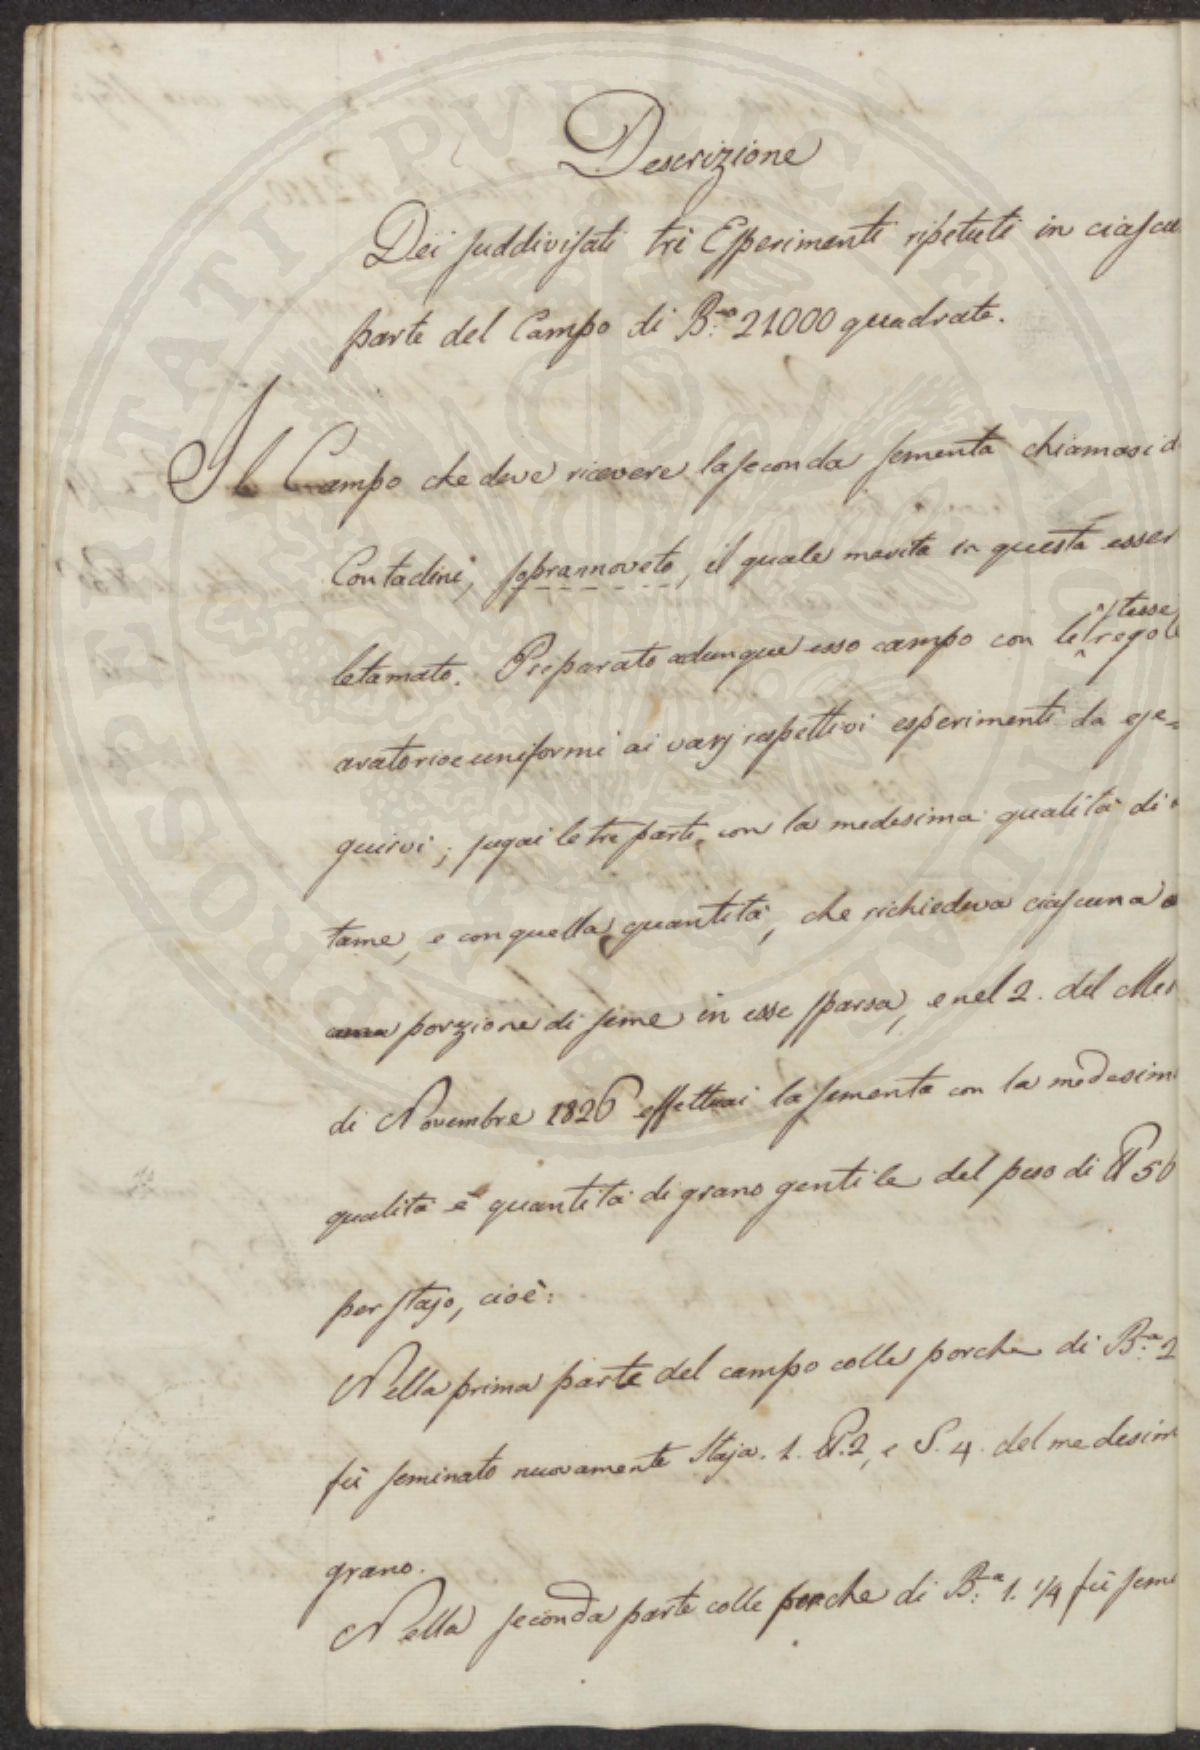 Descrizione
Dei suddivisati trè Esperimenti ripetuti in ciascu
parte del Campo di B.ª 21000 quadrate.
Il Campo che deve ricevere la seconda sementa chiamasi d
Contadini, soprannoveto, il quale merita in questa esser
letamato. Preparato adunque esso campo con le stesse regole
aratorie e uniformi ai varj respettivi esperimenti da ese=
guirvi; sugai le tre parti con la medesima qualità di
tame, e con quella quantità, che richiedeva ciascuna
porzione di seme in esse sparsa, e nel 2. del Mes
di Novembre 1826 effettuai la sementa con la medesim
qualità e quantità di grano gentile del peso di ℔ 50
per stajo, cioè:
Nella prima parte del campo colle porche di B.ª 2
fù seminato nuovamente Staja. 1. Q. 2, e S. 4. del medesim
grano.
Nella seconda parte colle porche di B.ª 1. 1/4 fù semi
PROSPERITATI PVBLICAE AVGENDAE